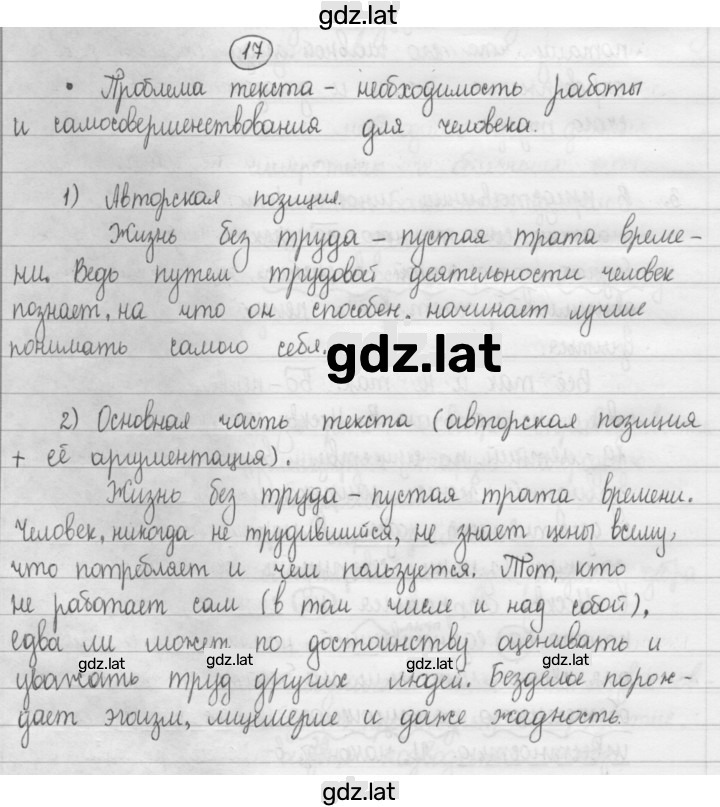 gdz.lat
17
• Проблема текста – необходимость работы
и самосовершенствования для человека.
1) Авторская позиция.
Жизнь без труда – пустая трата време-
ни. Ведь путем трудовой деятельности человек
познает, на что он способен, начинает лучше
понимать самого себя.
gdz.lat
2) Основная часть текста (авторская позиция
+ её аргументация).
Жизнь без труда – пустая трата времени.
Человек, никогда не трудившийся, не знает цены всему,
что потребляет и чем пользуется. Тот, кто
не работает сам (в том числе и над собой),
едва ли может по достоинству оценивать и
gdz.lat gdz.lat gdz.lat
уважать труд других людей. Безделье порож-
дает эгоизм, лицемерие и даже жадность.
gdz.lat